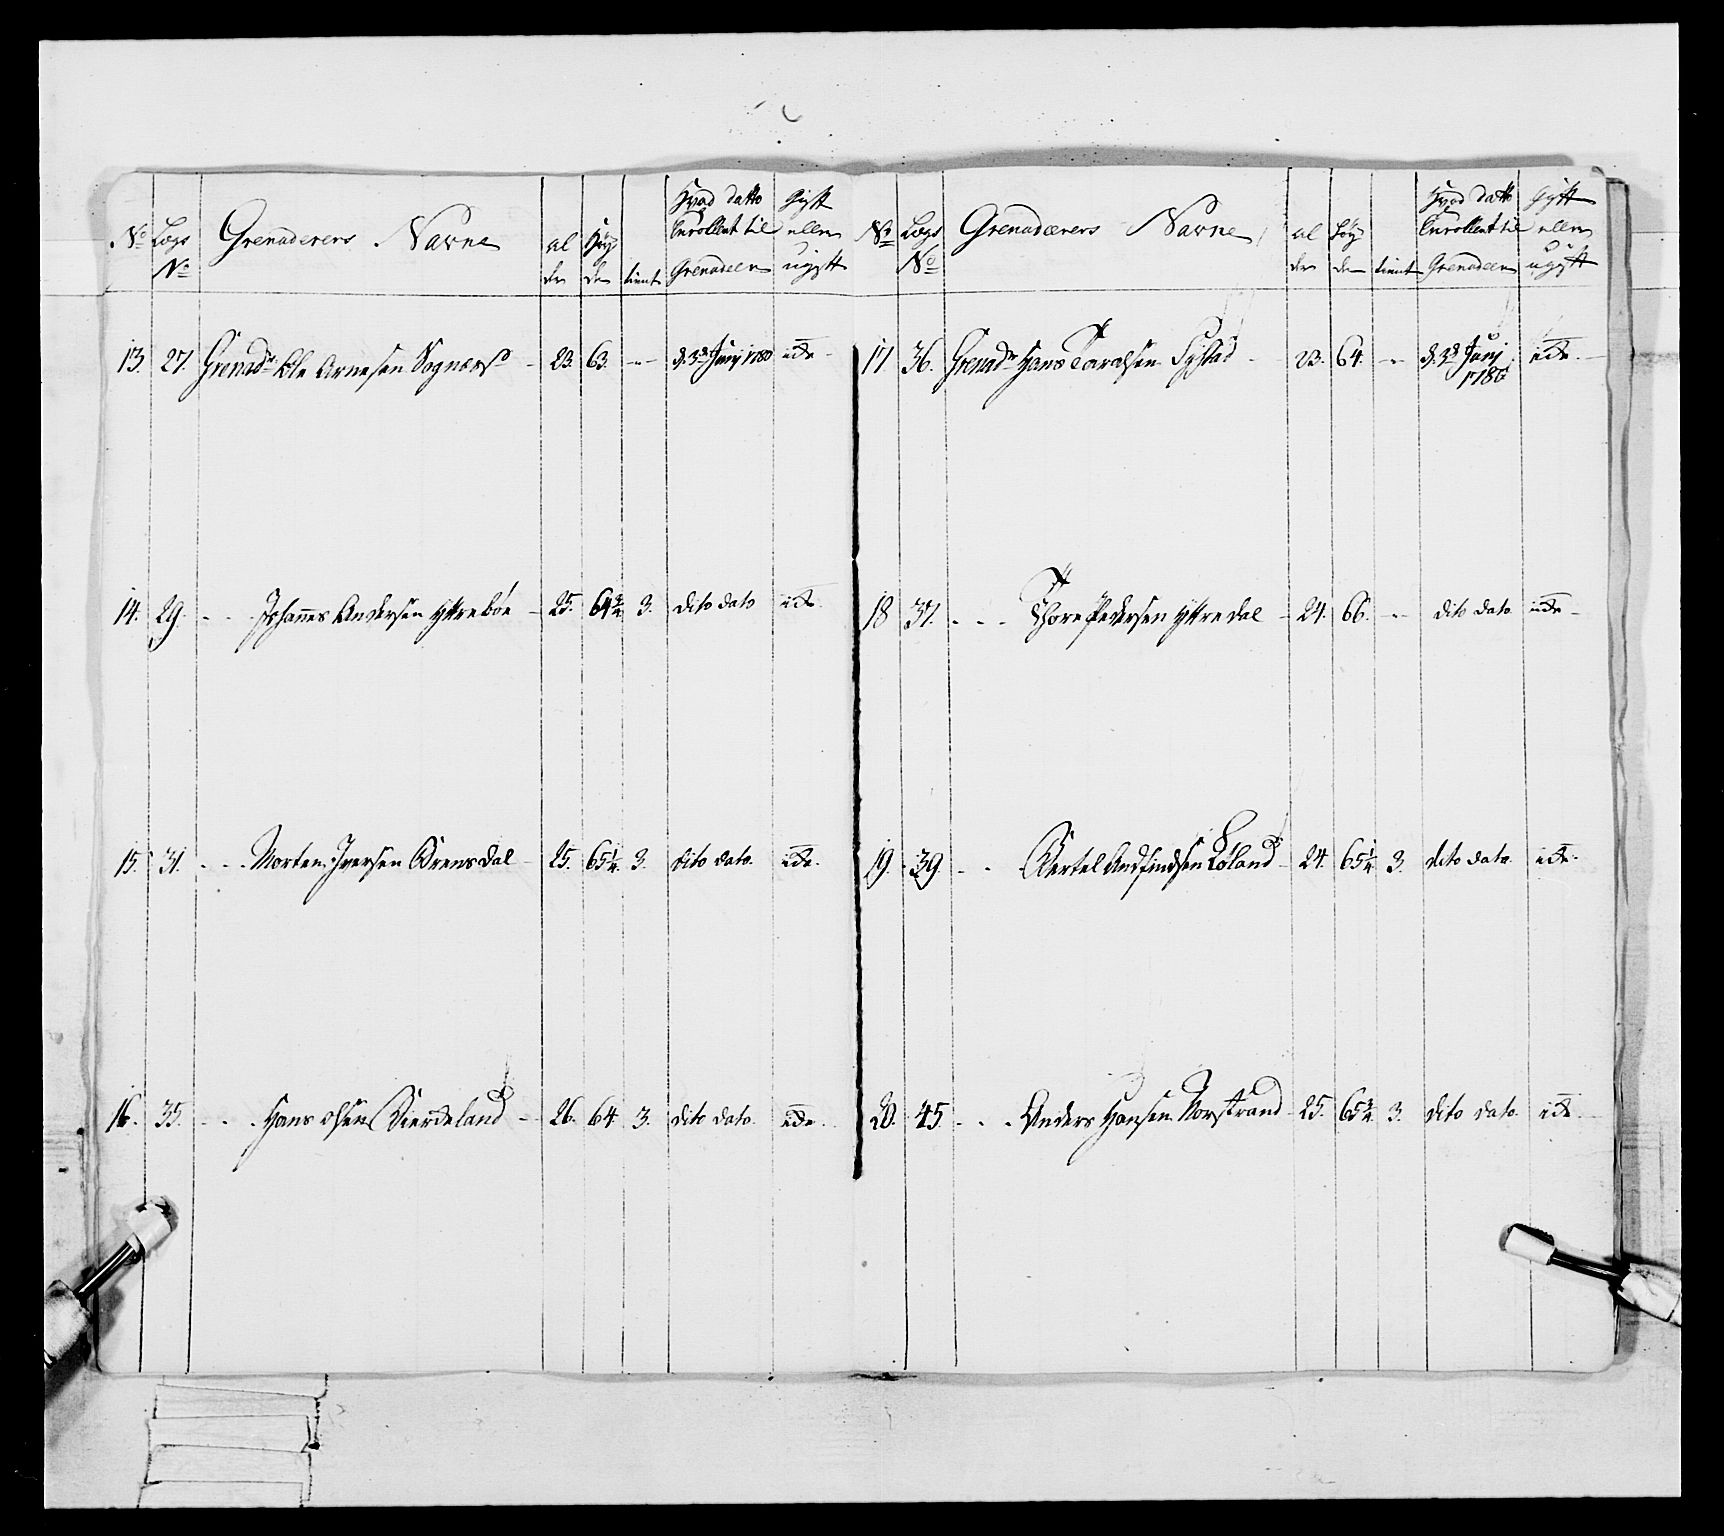 No Lægs No Grenaderers Navne al der Höy de tient Hvad datto Enrollert til Grenadeer Gift eller ugift
13. 27. Grenadr Ole Arnesen Sognæs - 23. 63. - - d. 3de Junj 1780 ide -
14. 29. - - - Johannes Andersen Yttreböe - 25. 64 3/4. 3. dito dato ide
15. 31. - - - Morten Iversen Ørensdal - 25. 65 1/4. 3. dito dato. ide.
16. 35. - - - Hans Olsen Sierdeland - 26. 64. 3. dito dato. ide.
No Lægs No Grenadærers Navne al der Höy de tient Hvad datto Enrollert til Grenadeer Gift eller ugift
17 36. Grenadr Hans Taralsen Systad - 23. 64. - - d. 3de Junj 1780 ide. -
18 37. - - - Thore Pedersen Yttredal - 24. 66. - - dito dato ide -
19. 39. - - Bertel Andfindsen Löland - 24. 65 1/4 3. dito dato. ide.
20. 45. - - - Anders Hansen Norstrand - 25. 65 3/4. 3. dito dato. ide -